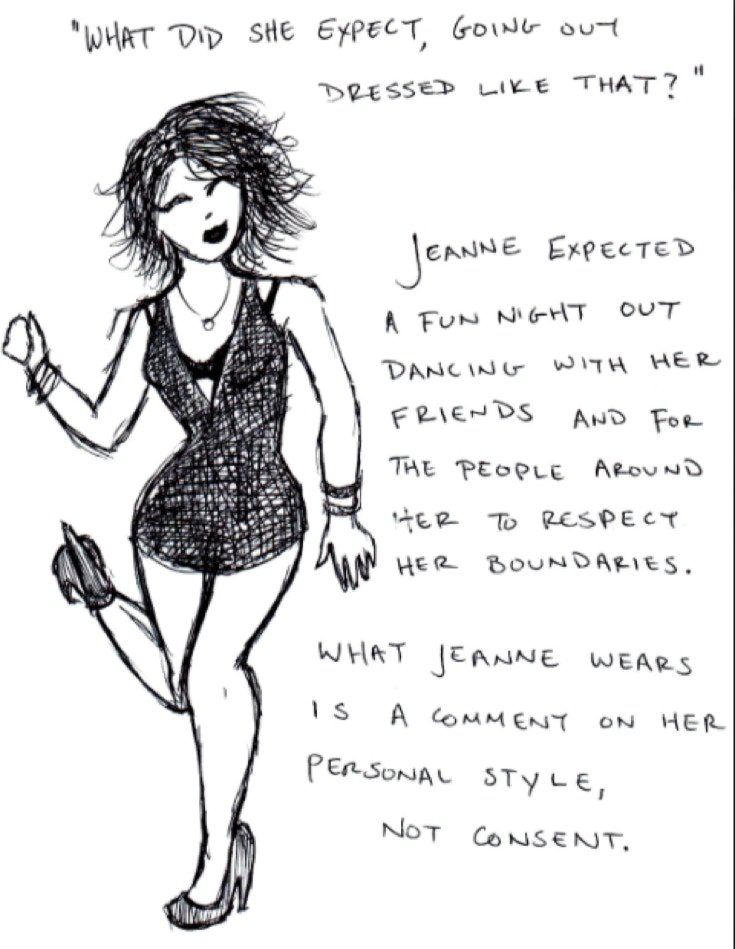 "WHAT DID SHE EXPECT, GOING OUT
DRESSED LIKE THAT?"
JEANNE EXPECTED
A FUN NIGHT OUT
DANCING WITH HER
FRIENDS AND FOR
THE PEOPLE AROUND
HER TO RESPECT
HER BOUNDARIES.
WHAT JEANNE WEARS
IS A COMMENT ON HER
PERSONAL STYLE,
NOT CONSENT.